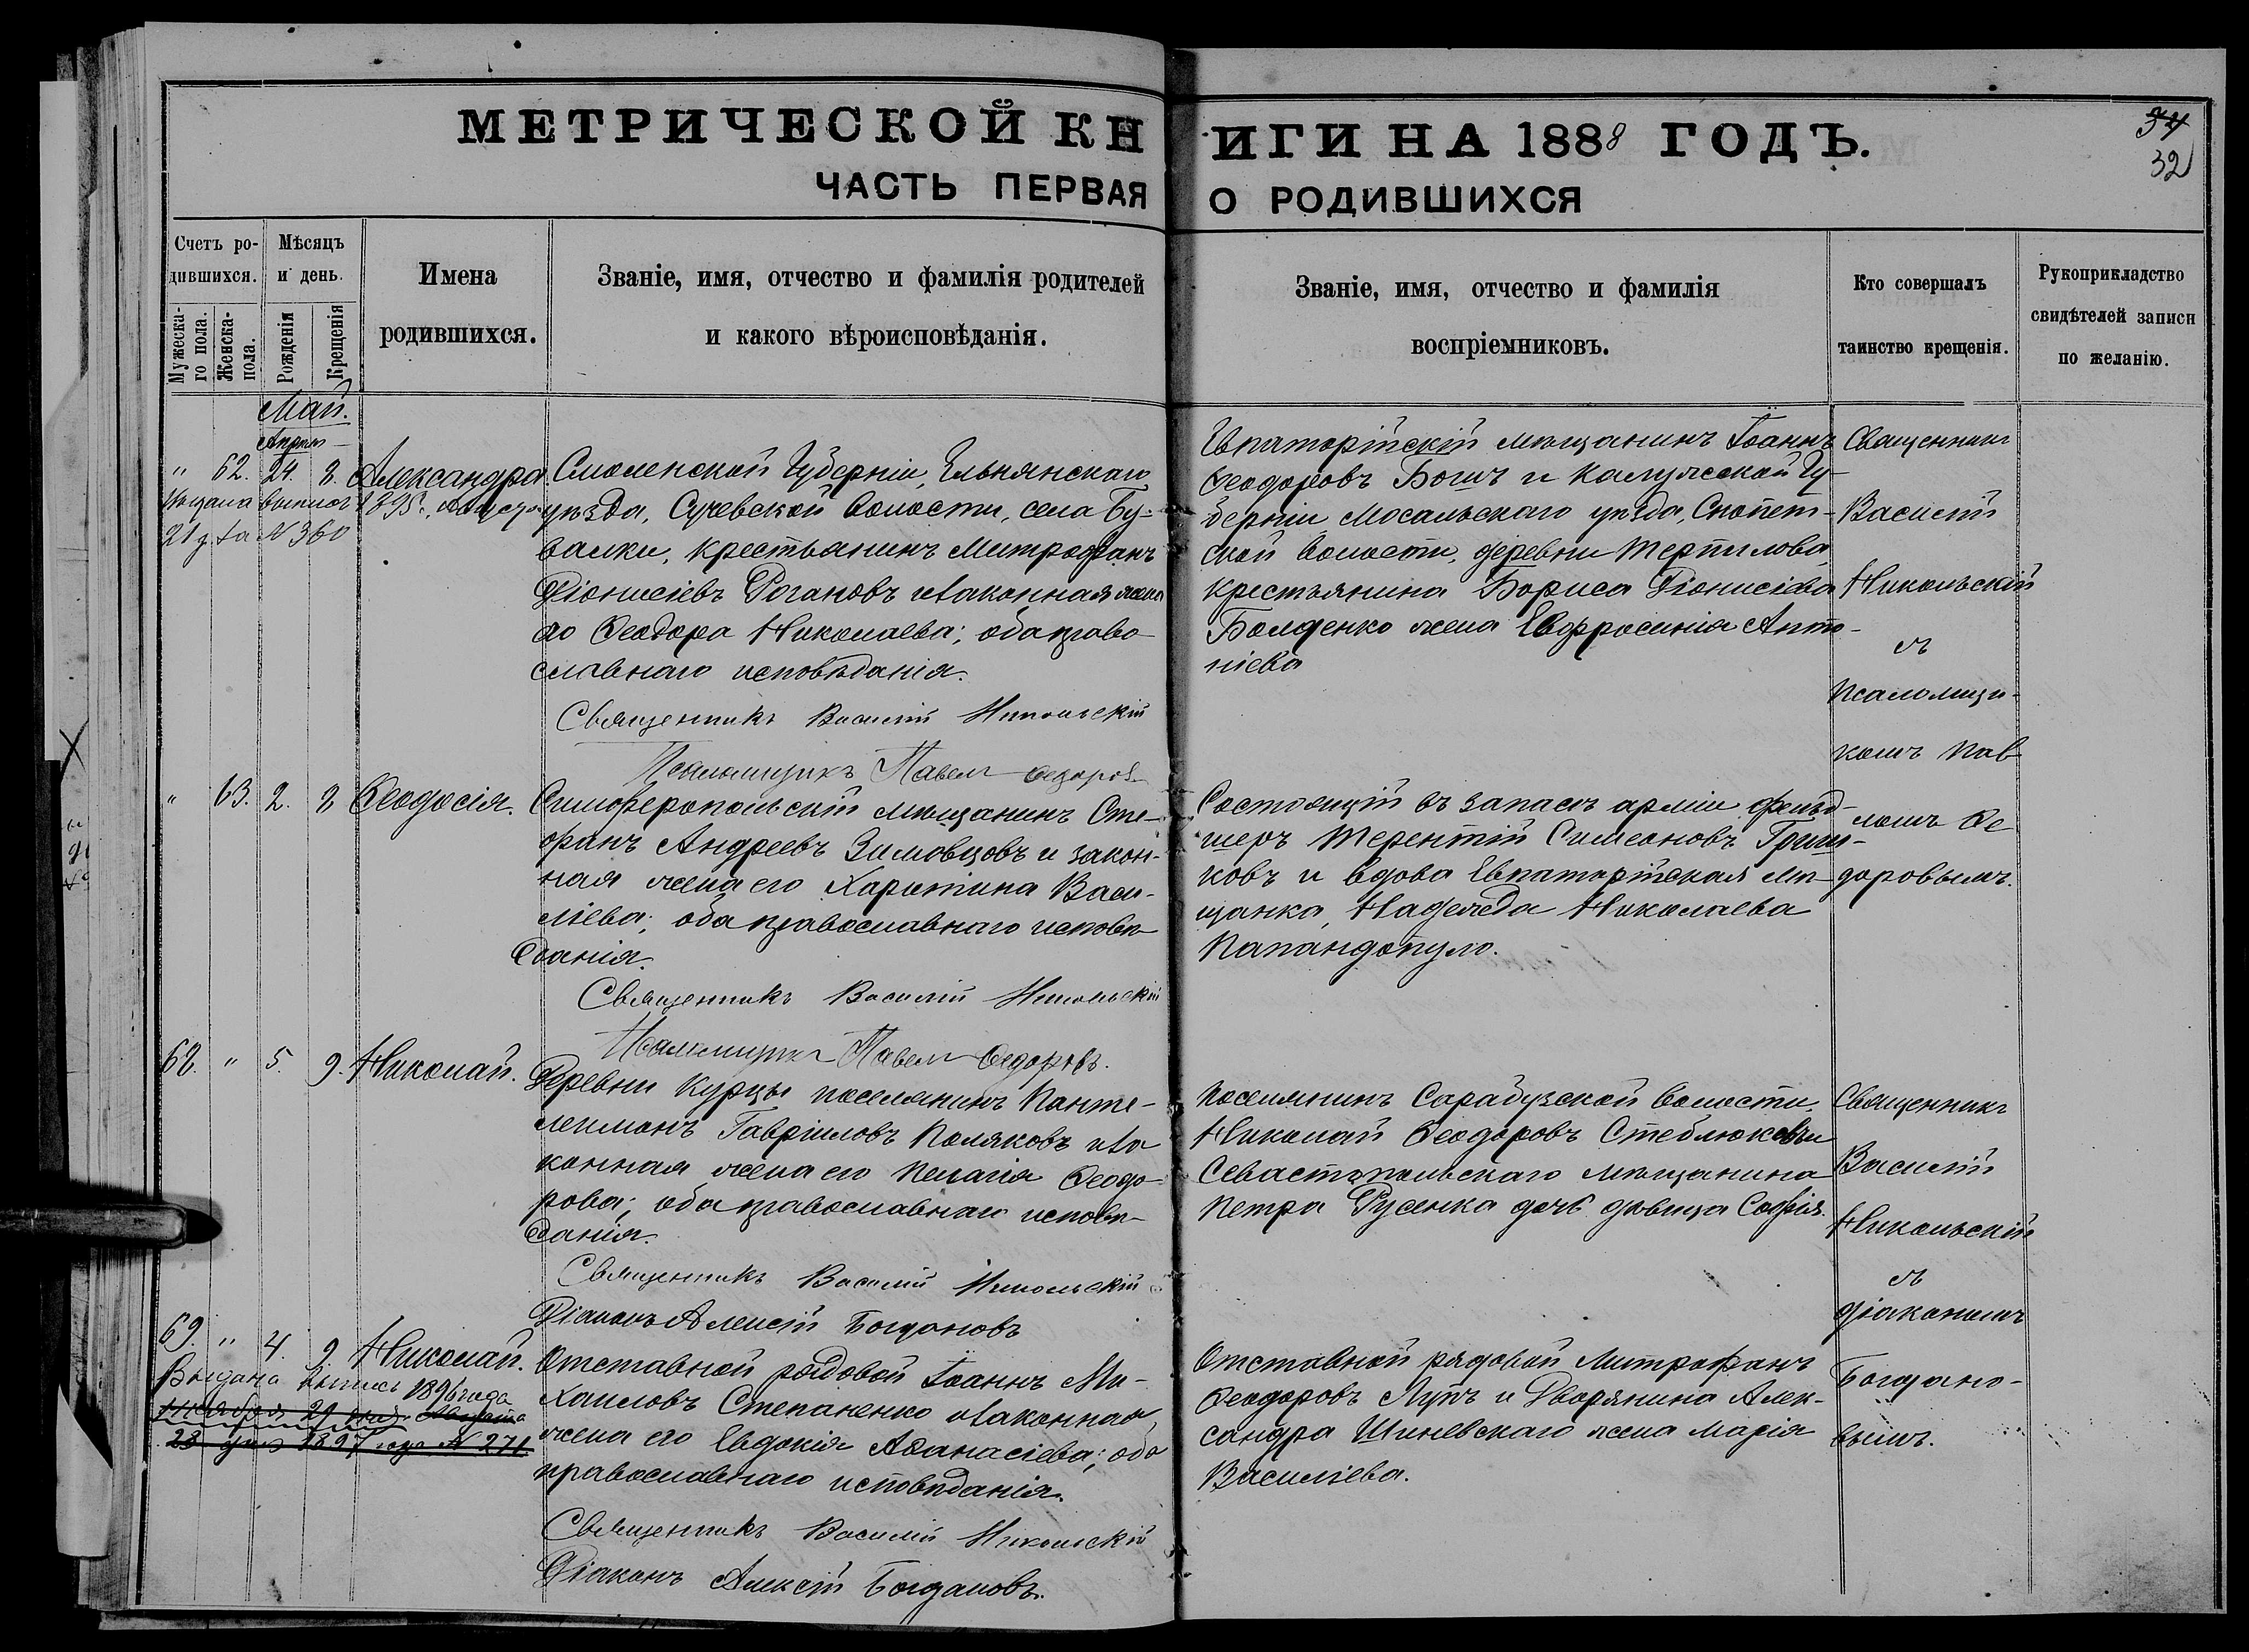 МЕТРИЧЕСКОЙ КНИГИ НА 1888 ГОДЪ.
ЧАСТЬ ПЕРВАЯ О РОДИВШИХСЯ
34
32
Счетъ ро-
дившихся.
Мужеска-
го пола.
Женска-
пола.
Мѣсяцъ
и день.
Рожденія
Крещенія
Имена
родившихся.
Званіе, имя, отчество и фамилія родителей
и какого вѣроисповѣданія.
Званіе, имя, отчество и фамилія
воспріемниковъ.
Кто совершалъ
таинство крещенія.
Рукоприкладство
свидѣтелей записи
по желанію.
Май.
" 62. 24. 8. Александра
21 № 360
Смоленской Губерніи, Ельнянскаго
уѣзда, волости, села Бу-
валки, крестьянинъ Митрофанъ
Діонисіевъ Рогановъ и законная жена
его Ѳеодора Николаева; оба право-
славнаго исповѣданія.
Священникъ Василій Никольскій
Псаломщикъ Павелъ Ѳедоровъ
Евпаторійскій мѣщанинъ Іоаннъ
Ѳеодоровъ Богшъ и Калужской Гу-
берніи Мосальскаго уѣзда,
ской волости, деревни Терпилова,
крестьянина Бориса Діонисіева
Болденко жена Евфросинія Анто-
ніева
Священникъ
Василій
Никольскій
съ
псаломщи-
комъ Пав-
ломъ Ѳе
доровымъ.
" 63. 2. 8 Ѳеодосія.
Симферопольскій мѣщанинъ Сте-
фанъ Андреевъ Зимовцовъ и закон-
ная жена его Харитина Васи-
ліева; оба православнаго исповѣ-
данія.
Священникъ Василій Никольскій
Псаломщикъ Павелъ Ѳедоровъ.
Состоящій въ запасѣ арміи фельд-
шеръ Терентій Симеоновъ Гриш-
ковъ и вдова Евпаторійская мѣ-
щанка, Надежда Николаева
Папандопуло.
68. " 5. 9. Николай.
Деревни Курцы поселянинъ Панте-
леимонъ Гавріиловъ Поляковъ и за
конная жена его Пелагія Ѳеодо-
рова; оба православнаго исповѣ-
данія.
Священникъ Василій Никольскій
Діаконъ Алексій Богдановъ
Поселянинъ Сарабузской волости,
Николай Ѳеодоровъ Стеблюковъ и
Севастопольскаго мѣщанина
Петра Русенка дочь дѣвица Софія.
Священникъ
Василій
Никольскій
съ
діакономъ
Богдано-
вымъ.
69. " 4. 9. Николай.
Выдана выпись 1896 года
28 1897 года № 271
Отставной рядовой Іоаннъ Ми-
хаиловъ Степаненко и законная
жена его Евдокія Аѳанасіева; оба
православнаго исповѣданія.
Священникъ Василій Никольскій
Діаконъ Алексій Богдановъ.
Отставной рядовой Митрофанъ
Ѳеодоровъ Лупъ и Дворянина Алек-
сандра Шиневскаго жена Марія
Василіева.